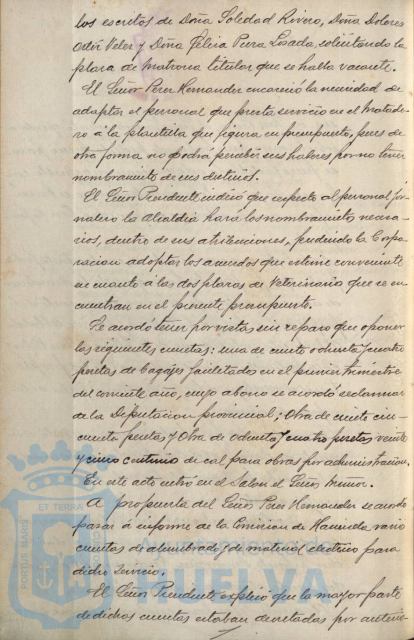 los escritos de Doña Soledad Rivero, Doña Dolores
Velez y Doña Felisa Parra Losada, solicitando la
plaza de Matrona titular que se halla vacante.
El Señor Perez Hernandez encareció la necesidad de
adaptar el personal que presta servicio en el Matade-
ro á la plantilla que figura en presupuesto, pues de
otra forma no podrá percibir sus haberes por no tener
nombramiento de sus destinos.
El Señor Presidente indicó que respecto al personal jor-
nalero la Alcaldia hará los nombramientos necesa-
rios, dentro de sus atribuciones, pudiendo la Corpo-
racion adoptar los acuerdos que estime conveniente
en cuanto á las dos plazas de Veterinario que se en-
cuentran en el presente presupuesto.
Se acordó tener por vistas sin reparo que oponer
las siguientes cuentas: una de ciento ochenta y cuatro
pesetas de bagajes facilitados en el primer trimestre
del corriente año, cuyo abono se acordó reclamar
de la Diputacion provincial; otra de ciento cin-
cuenta pesetas y otra de ochenta y cuatro pesetas veinte
y cinco centimos de cal para obras por administracion.
En este acto entró en el Salon el Señor
A propuesta del Señor Perez Hernandez se acordó
pasar á informe de la Comision de Hacienda varias
cuentas de alumbrado y de material electrico para
dicho servicio.
El Señor Presidente explicó que la mayor parte
de dichas cuentas estaban decretadas por anterio-
PORTUS MARIS
ET TERRA
CUSTODIA
Ayuntamiento de
HUELVA